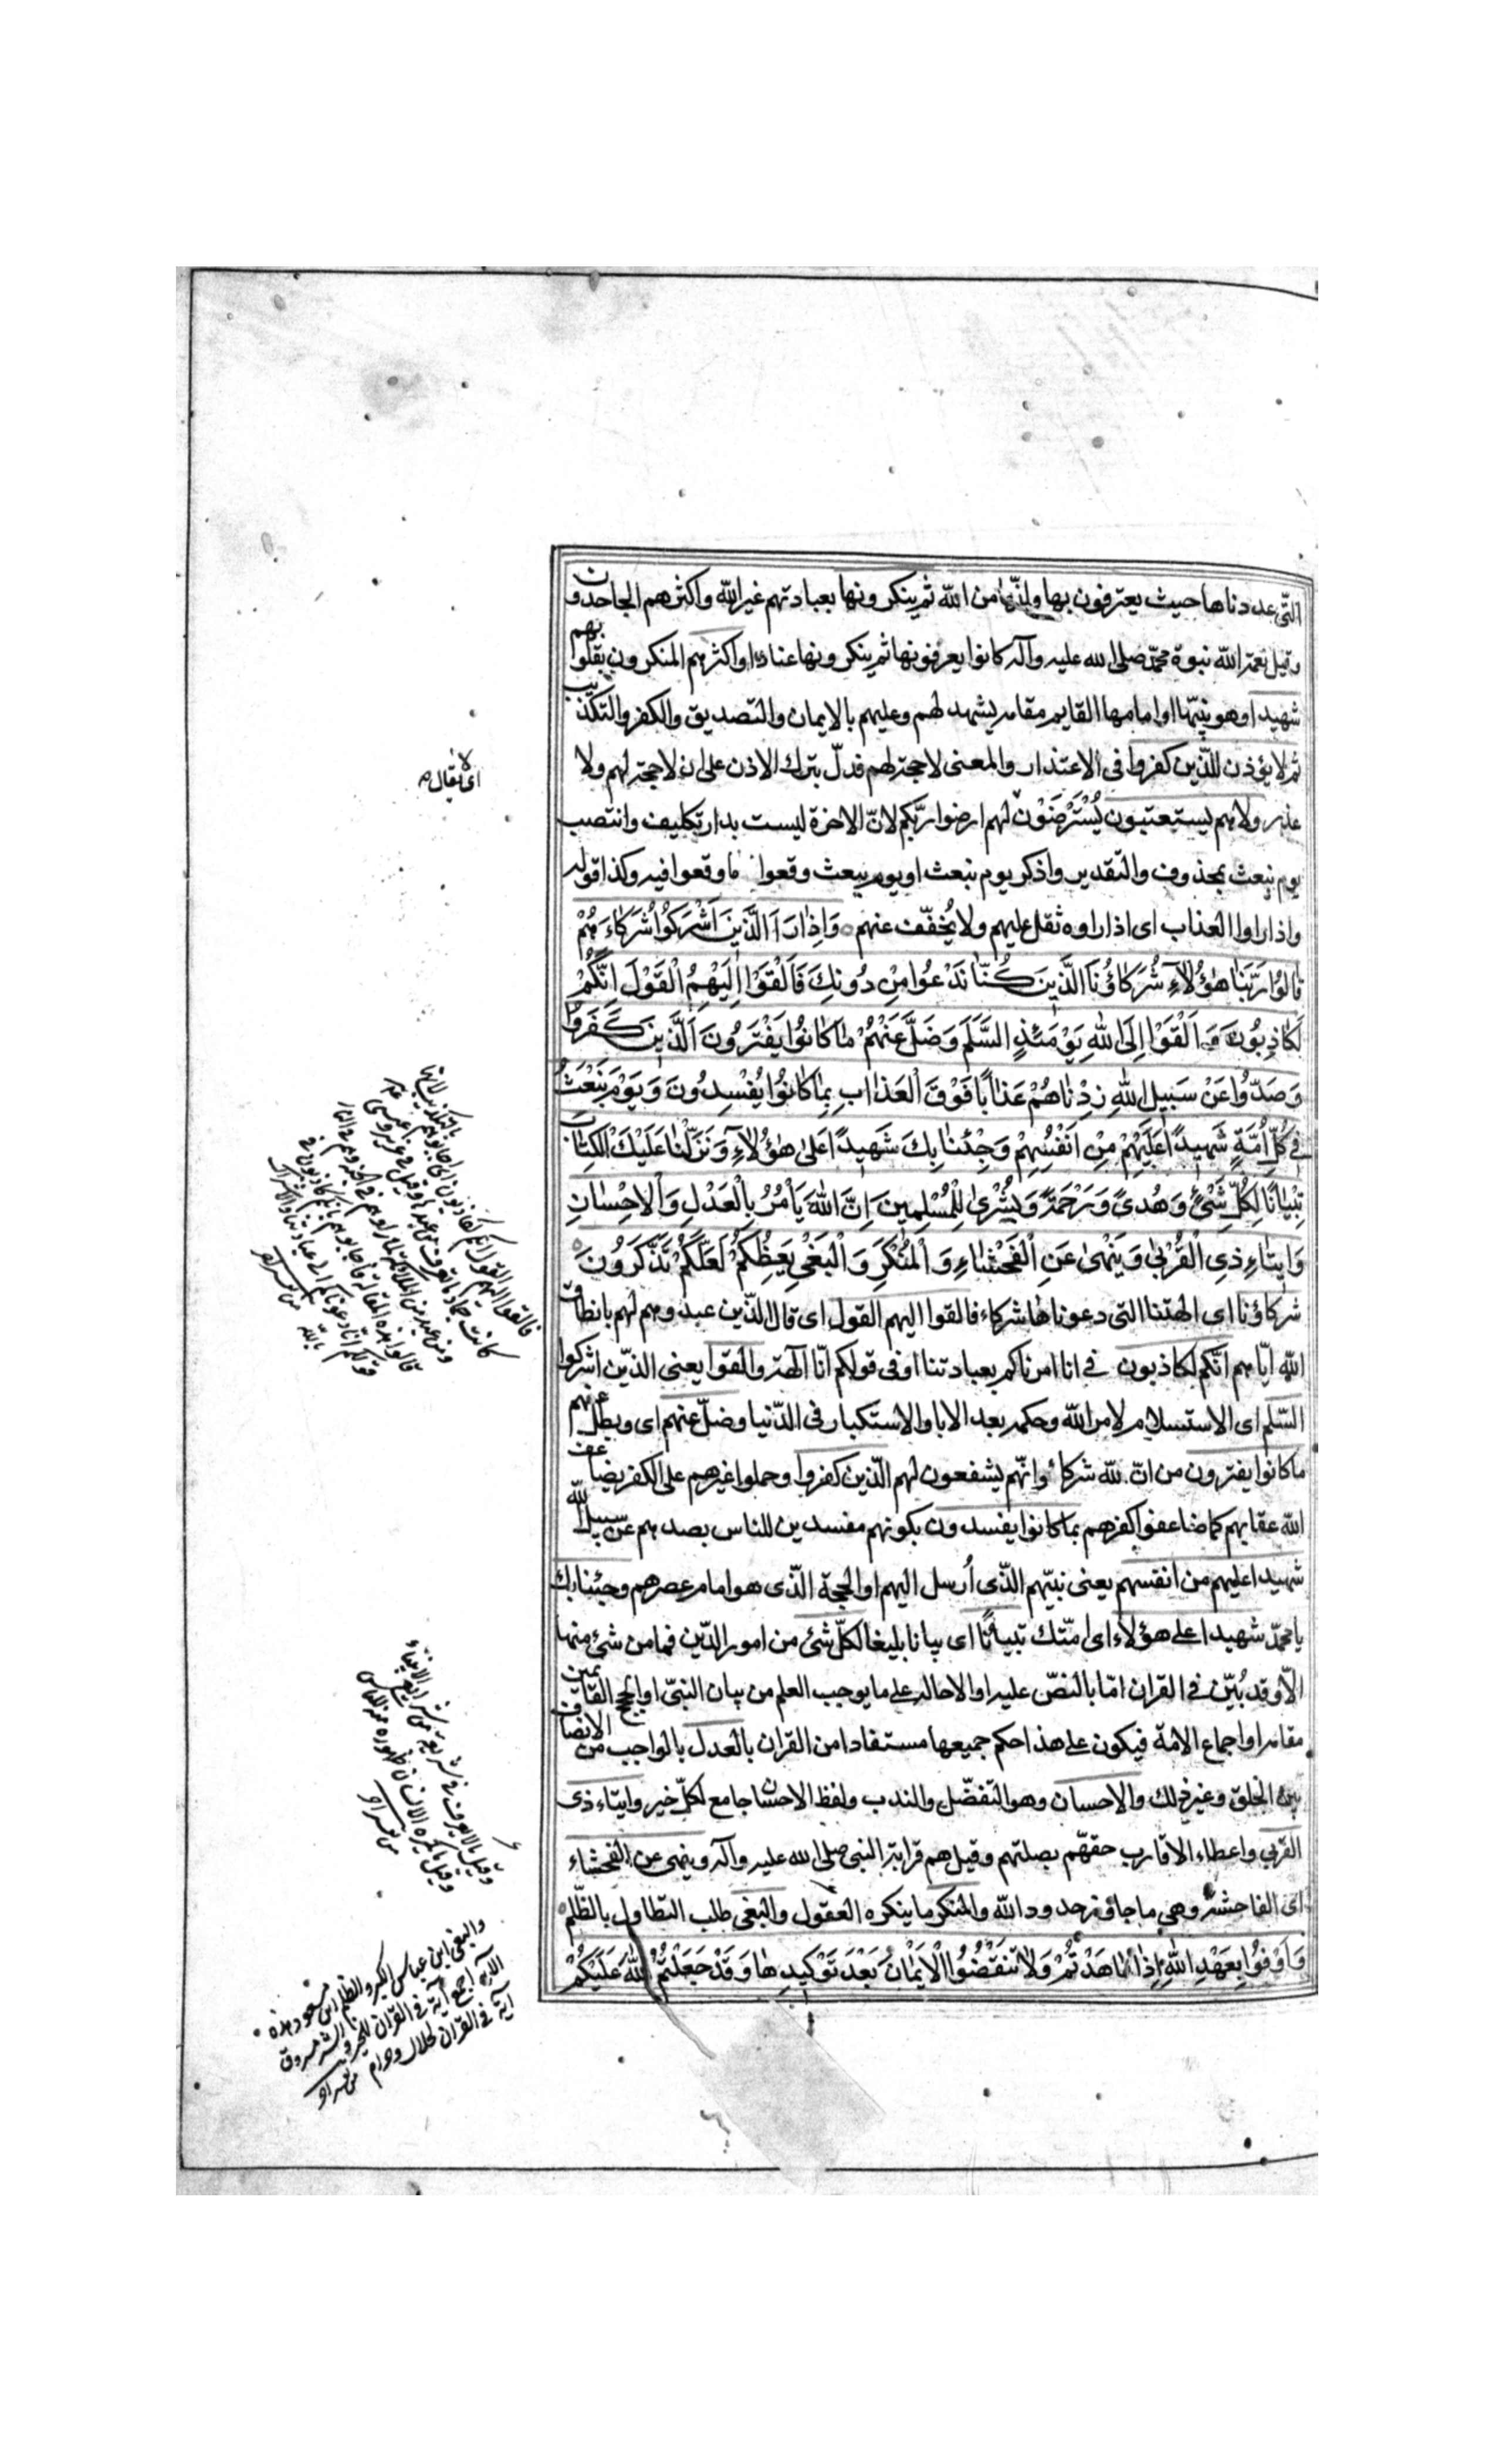 التّى عددناها حيث يعترفون بها وانّها من الله ثم ينكرونها بعبادتهم غير الله واكثرهم الجاحدون
وقيل نعمة الله نبوة محمّد صلى الله عليه وآله كانوا يعرفونها ثم ينكرونها عنادًا واكثرهم المنكرون بقلوبهم
شهيدا وهو نبيّها او امامها القايم مقامه يشهد لهم وعليهم بالايمان والتصديق والكفر والتكذيب
ثم لا يؤذن للذين كفروا فى الاعتذار والمعنى لا حجة لهم فدلّ بترك الاذن على ان لا حجة لهم ولا
عذر ولا هم يستعتبون يُسْتَرْضَوْنَ لهم ارضوا ربّكم لانّ الاخرة ليست بدار تكليف وانتصب
يوم نبعث بمحذوف والتقدير واذكر يوم نبعث او يوم نبعث وقعوا ما وقعوا فيه وكذا قوله
واذا راوا العذاب اى اذا راوه ثقل عليهم ولا يُخفّف عنهم وَاِذٰا رَاَ الَّذينَ اَشْرَكُوا شُرَكٰاءَهُمْ
قٰالُوا رَبَّنٰا هٰؤُلٰآءِ شُرَكٰاؤُنَا الَّذينَ كُنّٰا نَدْعُوا مِنْ دُونِكَ فَاَلْقَوْا اِلَيْهِمُ الْقَوْلَ اِنَّكُمْ
لَكٰاذِبُونَ وَ اَلْقَوْا اِلَى اللهِ يَوْمَئِذٍ السَّلَمَ وَضَلَّ عَنْهُمْ مٰا كٰانُوا يَفْتَرُونَ اَلَّذينَ كَفَرُوا
وَصَدُّوا عَنْ سَبيلِ اللهِ زِدْنٰاهُمْ عَذٰابًا فَوْقَ الْعَذٰابِ بِمٰا كٰانُوا يُفْسِدُونَ وَ يَوْمَ نَبْعَثُ
فى كُلِّ اُمَّةٍ شَهيدًا عَلَيْهِمْ مِنْ اَنْفُسِهِمْ وَجِئْنٰا بِكَ شَهيدًا عَلىٰ هٰؤُلٰآءِ وَ نَزَّلْنٰا عَلَيْكَ الْكِتٰابَ
تِبْيٰانًا لِكُلِّ شَىْءٍ وَ هُدىً وَ رَحْمَةً وَ بُشْرىٰ لِلْمُسْلِمينَ اِنَّ اللهَ يَأْمُرُ بِالْعَدْلِ وَ الْاِحْسٰانِ
وَ ايتٰاءِ ذِى الْقُرْبىٰ وَ يَنْهىٰ عَنِ الْفَحْشٰاءِ وَ الْمُنْكَرِ وَ الْبَغْىِ يَعِظُكُمْ لَعَلَّكُمْ تَذَكَّرُونَ
شركاؤنا اى الهتنا التى دعوناها شركاء فالقوا اليهم القول اى قال الذين عبدوهم لهم بانطاق
الله ايّاهم انّكم لكاذبون فى انا امرناكم بعبادتنا او فى قولكم انّا آلهة والقوا يعنى الذين اشركوا
السّلم اى الاستسلام لامر الله وحكمه بعد الابا والاستكبار فى الدّنيا وضلّ عنهم اى وبطل عنهم
ما كانوا يفترون من انّ لله شركاء وانّهم يشفعون لهم الّذين كفروا وحملوا غيرهم على الكفر يضاعف
الله عقابهم كما ضاعفوا كفرهم بما كانوا يفسدون بكونهم مفسدين للناس بصدهم عن سبيل الله
شهيدا عليهم من انفسهم يعنى نبيّهم الذّى اُرسل اليهم او الحجة الذّى هو امام عصرهم وجئنا بك
يا محمّد شهيدا على هؤلاء اى امّتك تبيانًا اى بيانا بليغا لكلّ شئ من امور الدّين فما من شئ منها
الاّ وقد بُيّن فى القران امّا بالنصّ عليه او الاحالة على ما يوجب العلم من بيان النبىّ او الحجج القائمين
مقامه او اجماع الامّة فيكون على هذا حكم جميعها مستفادا من القران بالعدل بالواجب من الانصاف
بين الخلق وغير ذلك والاحسان وهو التفضّل والندب ولفظ الاحسان جامع لكلّ خير وايتاء ذى
القربى واعطاء الاقارب حقّهم بصلتهم وقيل هم قرابة النبى صلى الله عليه وآله وينهى عن الفحشاء
اى الفاحشة وهى ما جاوز حدود الله والمنكر ما ينكره العقول والبغى طلب التطاول بالظّلم
وَ اَوْفُوا بِعَهْدِ اللهِ اِذٰا عٰاهَدْتُمْ وَ لٰا تَنْقُضُوا الْاَيْمٰانَ بَعْدَ تَوْكيدِهٰا وَ قَدْ جَعَلْتُمُ اللهَ عَلَيْكُمْ
اى لا يقال
فالقوا اليهم القول انكم لكاذبون
والبغى ابن عباس الكبر والظلم ابن مسعود هذه
الآية اجمع آية فى القرآن للخير والشر
آية فى القرآن لحلال وحرام